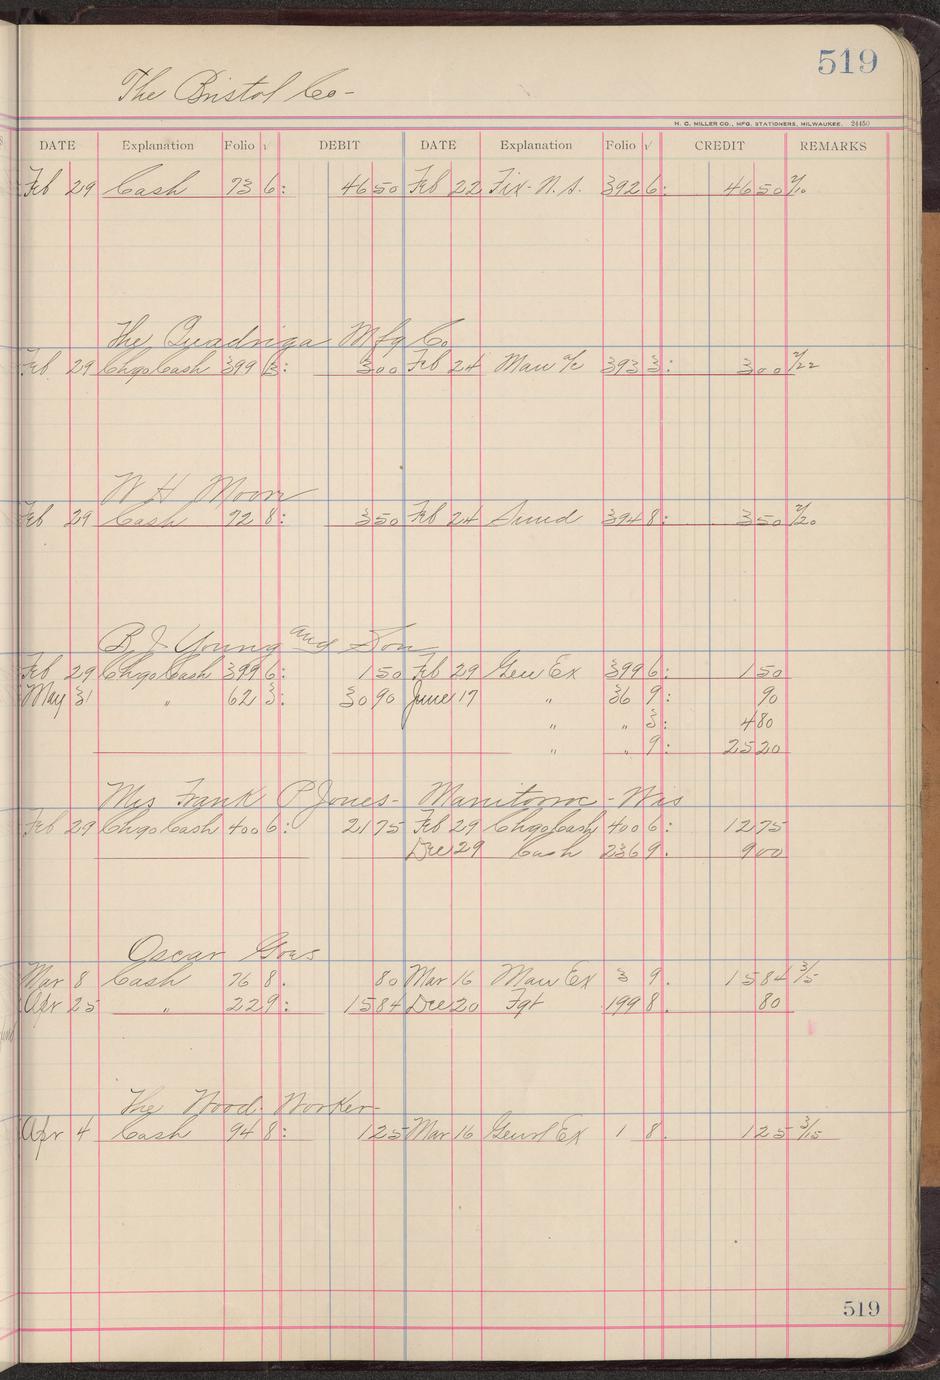 519
The Bristol Co-
H. C. MILLER CO., MFG. STATIONERS, MILWAUKEE. 24450
DATE Explanation Folio √ DEBIT DATE Explanation Folio √ CREDIT REMARKS
Feb 29 Cash 73 6: 46 50 Feb 22 Fix- N.S. 392 6: 46 50 2/10
The Quadriga Mfg Co
Feb 29 Chgo Cash 399 3: 3 00 Feb 24 Man a/c 393 3: 3 00 2/22
W H Moon
Feb 29 Cash 72 8: 3 50 Feb 24 Sund 394 8: 3 50 2/20
B J Young and Son
Feb 29 Chgo Cash 399 6: 1 50 Feb 29 Gen Ex 399 6: 1 50
May 31 " 62 3: 30 90 June 17 " 36 9: 90
" " 3: 4 80
" " 9: 25 20
Mrs Frank P Jones- Manitowoc - Wis
Feb 29 Chgo Cash 400 6: 21 75 Feb 29 Chgo Cash 400 6: 12 75
Dec 29 Cash 236 9. 9 00
Oscar Goes
Mar 8 Cash 76 8. 80 Mar 16 Man Ex 3 9. 15 84 3/5
Apr 25 " 22 9: 15 84 Dec 20 Fgt 199 8. 80
The Wood- Worker-
Apr 4 Cash 94 8: 1 25 Mar 16 Genrl Ex 1 8. 1 25 3/15
519